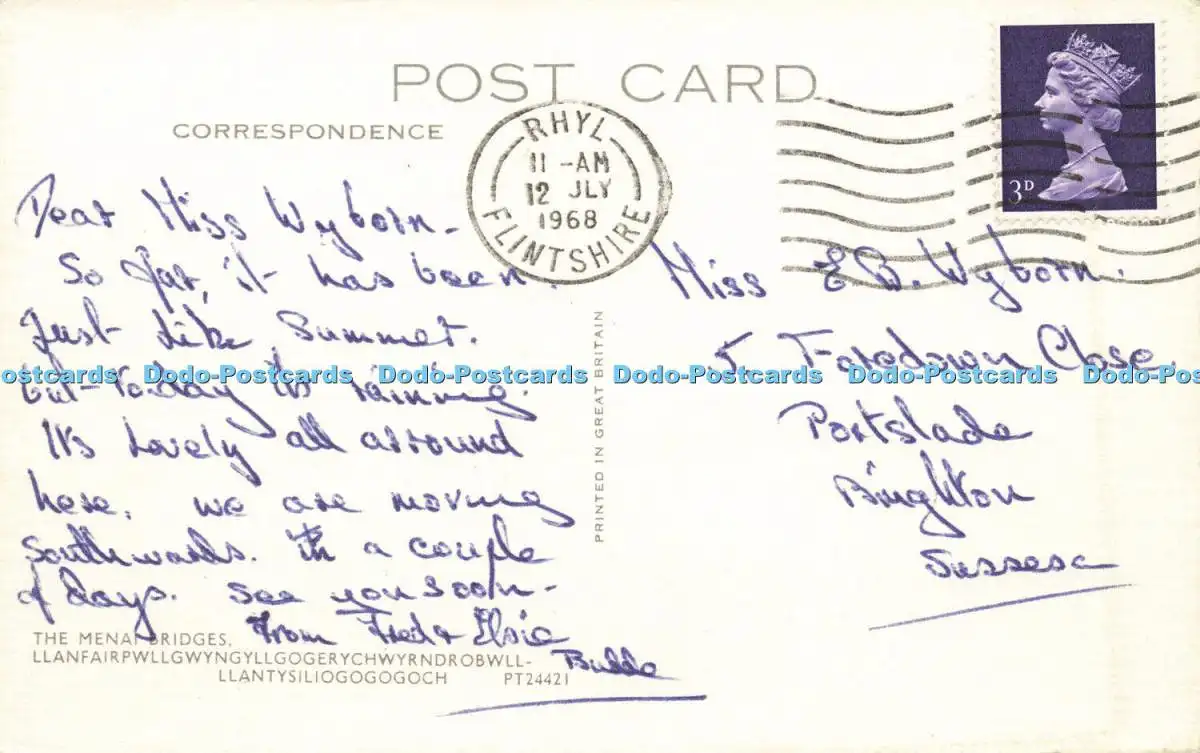 POST CARD
CORRESPONDENCE
RHYL
11 -AM
12 JLY
1968
FLINTSHIRE
3D
Dear Miss Wyborn -
So far, it has been.
Just Like Summer.
but - To-day its raining.
It's Lovely all arround
here. we are moving
Southwards. in a couple
of days. See you soon -
From Fred & Elsie
Budde
Miss E B. Wyborn.
5 Foredown Close
Portslade
Brighton
Sussex
PRINTED IN GREAT BRITAIN
THE MENAI BRIDGES,
LLANFAIRPWLLGWYNGYLLGOGERYCHWYRNDROBWLL-
LLANTYSILIOGOGOGOCH PT24421
Dodo-Postcards Dodo-Postcards Dodo-Postcards Dodo-Postcards Dodo-Postcards Dodo-Postcards